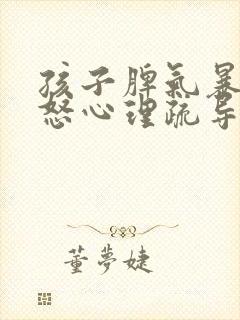 孩子脾氣暴
怒心理疏导
董夢婕